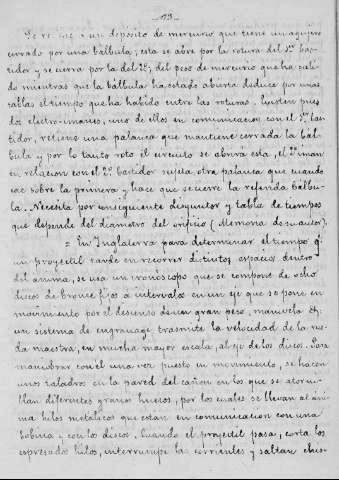 -13-
un depósito de mercurio que tiene un agujero
cerrado por una bálbula; esta se abre por la rotura del 1er bas-
tidor y se cierra por la del 2º; del peso de mercurio que ha sali-
do mientras que la bálbula ha estado abierta deduce por unas
tablas el tiempo que ha habido entre las roturas. Existen pues
dos electro-imanes, uno de ellos en comunicacion con el 1er bas-
tidor, retiene una palanca que mantiene cerrada la bál-
bula y por lo tanto roto el circuito se abrirá esta, el 2º iman
en relacion con el 2º bastidor sujeta otra palanca que cuando
cae sobre la primera y hace que se cierre la referida bálbu-
la. Necesita por consiguiente disyuntor y tabla de tiempos
que depende del diametro del orificio (Memoria de su autor).
= En Inglaterra para determinar el tiempo q.
un proyectil tarde en recorrer distintos espacios dentro
del anima, se usa un cronóscopo que se compone de ocho
discos de bronce fijos a intervalos en un eje que se pone en
movimiento por el descenso de un gran peso, manivela &;
un sistema de engranage trasmite la velocidad de la rue-
da maestra, en mucha mayor escala, al eje de los discos. Para
maniobrar con el una vez puesto en movimiento, se hacen
unos taladros en la pared del cañon en los que se atorni-
llan diferentes granos huecos, por los cuales se llevan al áni-
ma hilos metálicos que estan en comunicacion con una
bobina y con los discos. Cuando el proyectil pasa, corta los
espresados hilos, interrumpe las corrientes y saltan chis-